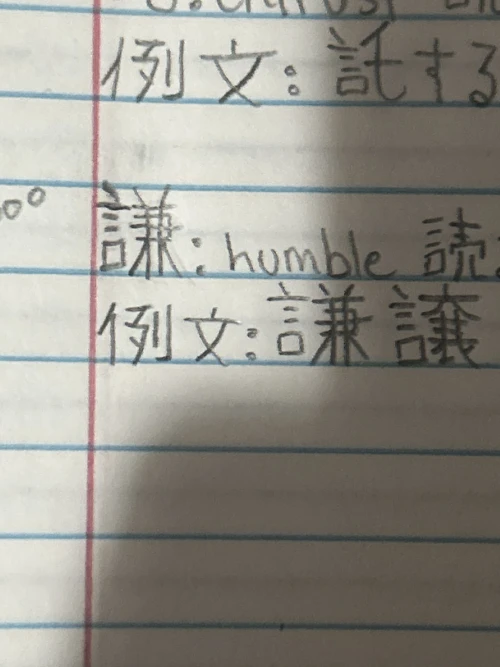 例文：託する
謙：humble 読
例文：謙譲